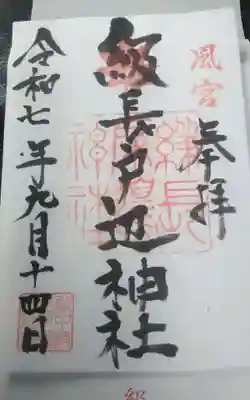 風宮
奉拝
級長戸辺神社
令和七年九月十四日